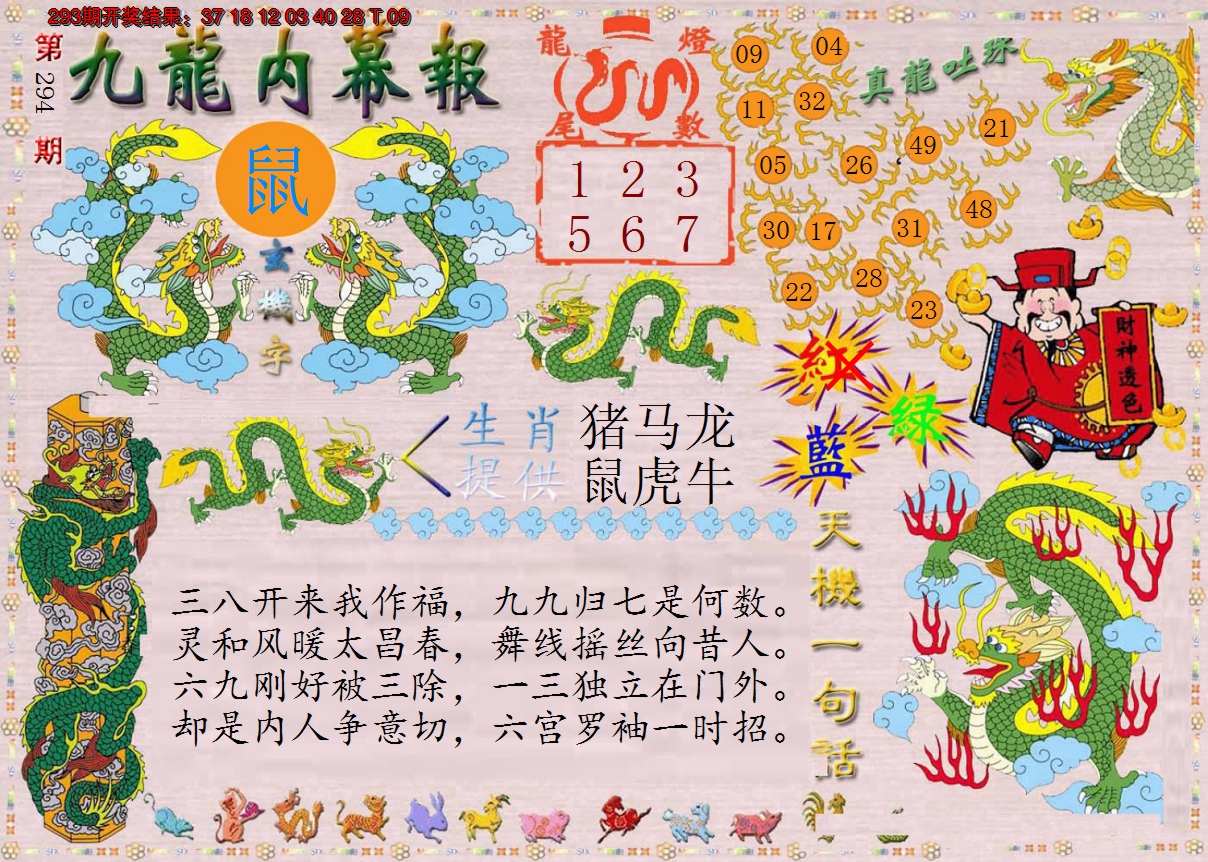 293期开奖结果：37 18 12 03 40 28 T 09
第294期
九龍内幕報
鼠
玄機字
龍燈
尾數
1 2 3
5 6 7
真龍吐珠
09
04
11
32
49
21
05
26
48
30
17
31
28
22
23
財神透色
紅
綠
藍
生肖提供
猪马龙
鼠虎牛
三八开来我作福，九九归七是何数。
灵和风暖太昌春，舞线摇丝向昔人。
六九刚好被三除，一三独立在门外。
却是内人争意切，六宫罗袖一时招。
天機一句話